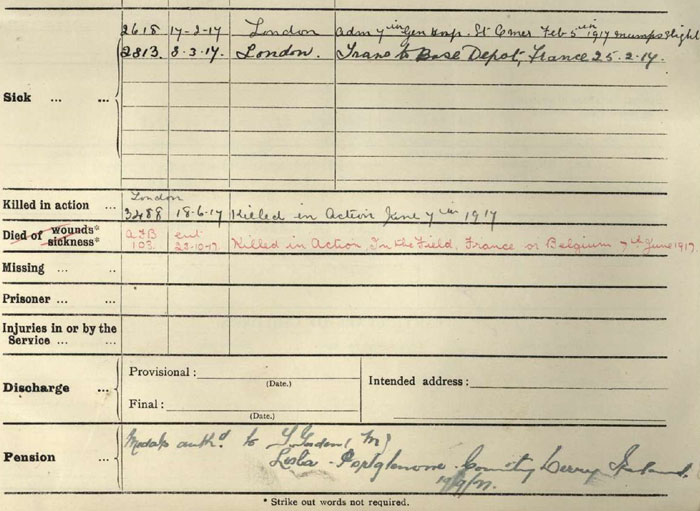 2618 17-2-17 London adm 7th Gen Hosp. St Omer Feb 5th 1917 mumps slight
2813. 3-3-17. London. Trans to Base Depot, France 25.2.17.
Sick ... ...
London
Killed in action ... 3488 18-6-17 Killed in Action June 7th 1917
Died of wounds* sickness* A&B 103. 22-10-17 Killed in Action, In the Field, France or Belgium 7th June 1917.
Missing ... ...
Prisoner ... ...
Injuries in or by the
Service ... ...
Discharge ... Provisional : (Date.) Intended address :
Final : (Date.)
Pension ... Medals auth'd to (M)
Portglenone County Derry Ireland.
* Strike out words not required.